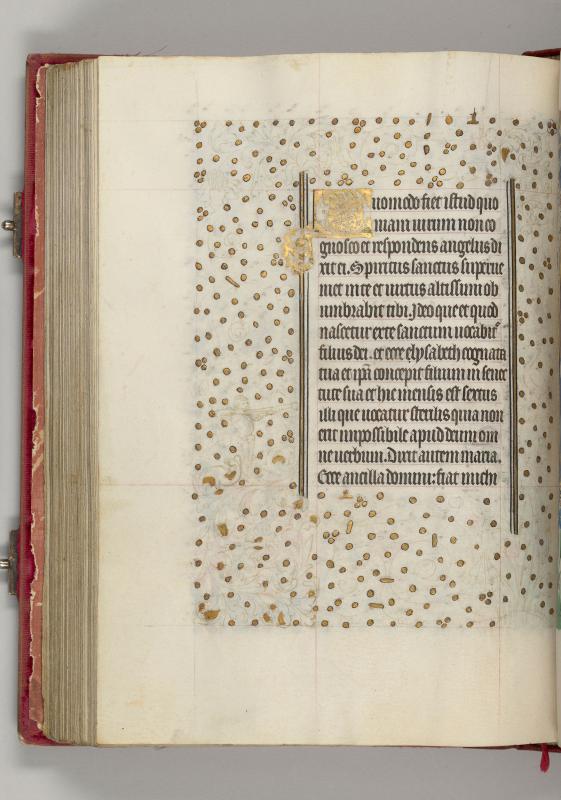 Quomodo fiet istud quo
niam uirum non co
gnosco et respondens angelus di
xit ei. Spiritus sanctus superue
niet in te et uirtus altissimi ob
umbrabit tibi. Ideo que et quod
nascetur ex te sanctum uocabit᷑
filius dei. et ecce elysabeth cognata
tua et ip̄a concepit filium in senec
tute sua et hic mensis est sextus
illi que uocatur sterilis quia non
erit impossibile apud deum om
ne uerbum. Dixit autem maria.
Ecce ancilla domini: fiat michi